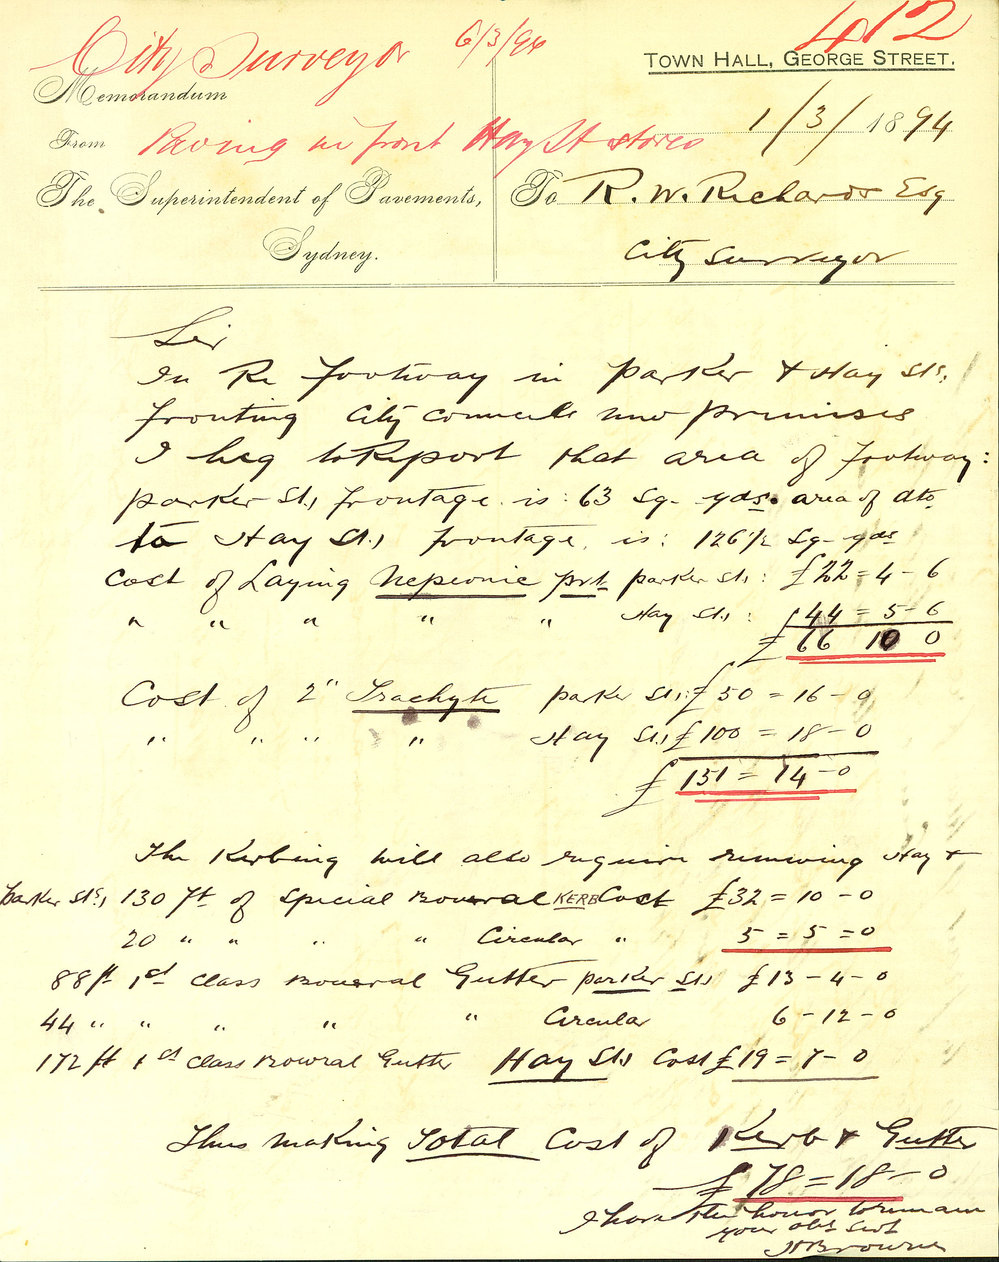 412
City Surveyor 6/3/94
TOWN HALL, GEORGE STREET.
Memorandum
1/3/1894
From Paving in front Hay St stores
The Superintendent of Pavements,
Sydney.
To R. W. Richards Esq
City Surveyor
Sir
In Re Footway in Parker & Hay Sts,
fronting City Councils new premises
I beg to Report that area of Footway:
Parker St, frontage is: 63 Sq- yds. area of dto
to Hay St, frontage, is: 126 1/2 Sq- yds
Cost of Laying Nepeonic pvt Parker St: £22=4-6
" " " " " Hay St: £44=5-6
£66 10 0
Cost of 2" Trachyte Parker St: £50=16-0
" " " " Hay St, £100=18-0
£151=14-0
The Kerbing will also require renewing Hay &
Parker Sts, 130 ft of Special Bowral KERB Cost £32=10-0
20 " " " " Circular " 5=5=0
88 ft 1st Class Bowral Gutter Parker St, £13-4-0
44 " " " " " Circular 6-12-0
172 ft 1st Class Bowral Gutter Hay St, Cost £19=7-0
Thus making Total Cost of Kerb & Gutter
£78=18-0
I have the honor to remain
your obt Svt
Browne